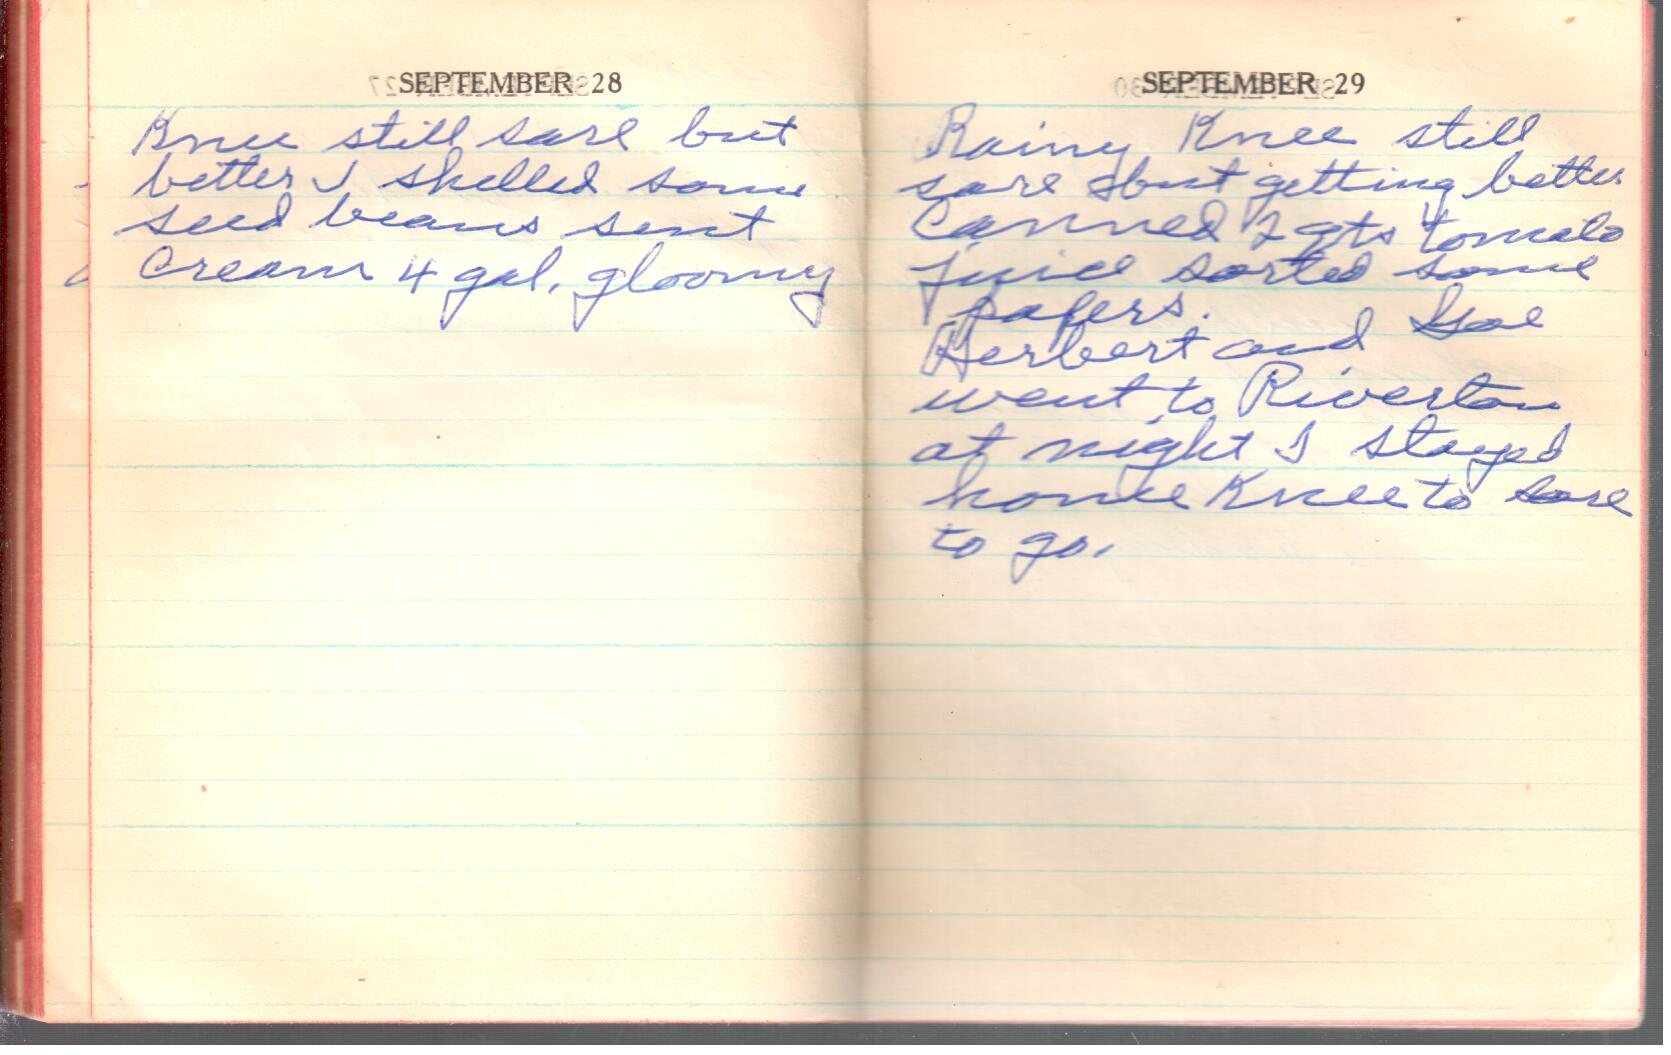 SEPTEMBER 28
Knee still sore but
better I shelled some
seed beans sent
cream 4 gal. gloomy
SEPTEMBER 29
Rainy Knee still
sore but getting better
Canned 2 qts tomato
juice sorted some
papers.
Herbert and
went to Riverton
at night I stayed
home Knee to sore
to go.